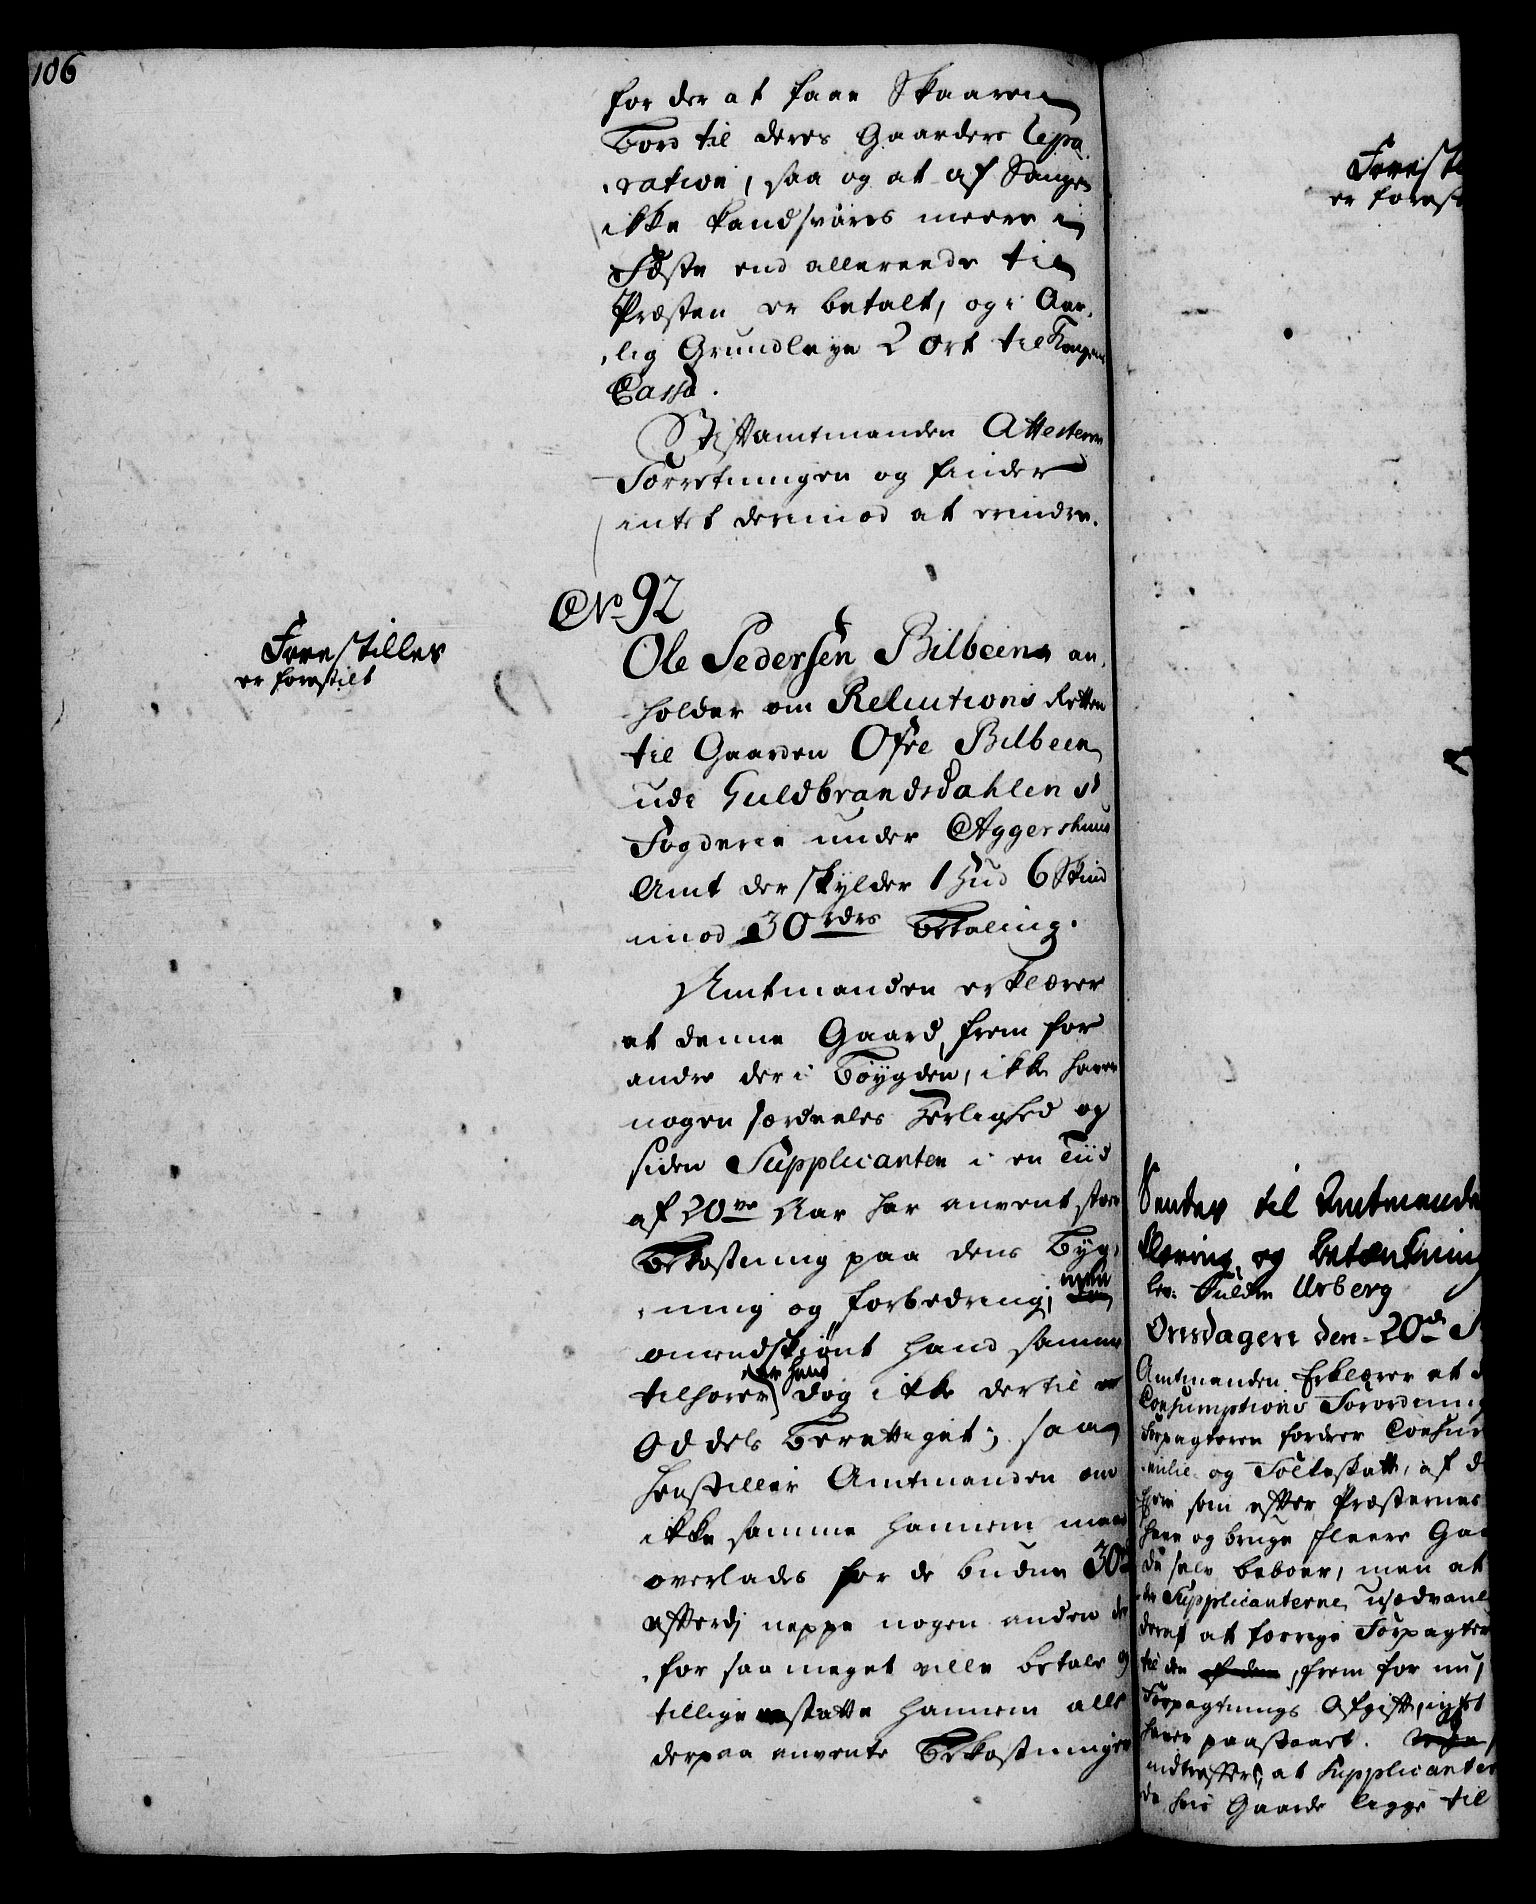 106
for der at faae Skaaren
Bord til deres Gaarders Repa,
,ration, saa og at af Saugen
ikke kand svares meere i
Fæste end allereede til
Præsten er betalt, og i Aar,
,lig Grundleye 2 Ort til Kongens
Cassa.
Stiftamtmanden Attesterer
Forretningen og finder
intet derimod at erindre.
No 92
Forestilles
er forestilt
Ole Pedersen Bilbeen an,
holder om Reluitions Retten
til Gaarden Ofre Bilbeen
udi Guldbrandsdahlens
Fogderie under Aggershuus
Amt der skylder 1 Hud 6 Skind
imod 30 rdrs Betaling.
Amtmanden erklærer
at denne Gaard, frem for
andre der i Bøygden, ikke haver
nogen særdeeles Herlighed og
siden Supplicanten i en Tiid
af 20ve Aar har anvent stoer
Bekostning paa dens Byg,
,ning og forbedring, men
omendskiønt hand samme
tilhører, er hand dog ikke dertil
Oddels Berettiget; saa
henstiller Amtmanden om
ikke samme hannem maae
overlades for de budne 30 rd
efterdj neppe nogen anden der
,for saa meget ville betale og
tillige erstatte hannem alle
derpaa anvente Bekostninger
Forest
er forest
Sendes til Amtmande
klæring og Betænkning
lev. Fulden Urberg
Onsdagen den 20d
Amtmanden Erklærer at d
Consumptions Forordning
Forpagteren fordrer Consum
milie og Folkeskatt, af d
som efter Præsternes
have og bruge fleere Gaa
de selv beboer, men at
de Supplicanterne usædvanl
deraf at forrige Forpagter
til den frem for nu,
Forpagtnings Afgift, intet
haver paastaaet.
indtreffer, at Supplicanter
de hvis Gaarde legge til